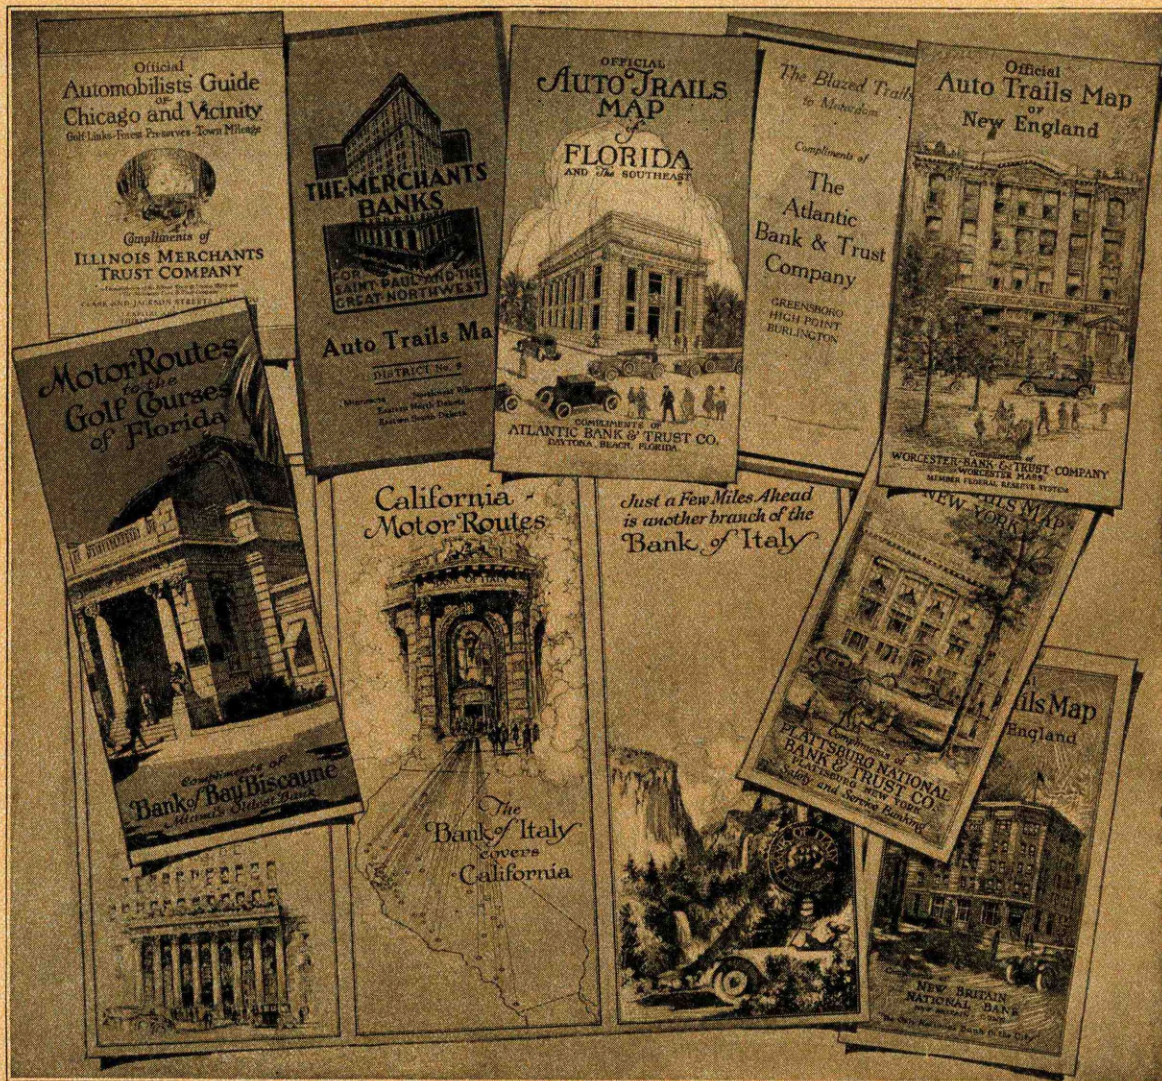 Official
Automobilists' Guide
OF
Chicago and Vicinity
Golf Links-Forest Preserves-Town Mileage
Compliments of
ILLINOIS MERCHANTS
TRUST COMPANY
CLARK AND JACKSON STREETS
THE MERCHANTS
BANKS
FOR
SAINT PAUL AND THE
GREAT NORTHWEST
Auto Trails Ma
DISTRICT No. 9
Minnesota
Eastern North Dakota
Eastern South Dakota
OFFICIAL
AUTO TRAILS
MAP
of
FLORIDA
AND the SOUTHEAST
COMPLIMENTS OF
ATLANTIC BANK & TRUST CO.
DAYTONA BEACH, FLORIDA
The Blazed Trails
to Motordom
Compliments of
The
Atlantic
Bank & Trust
Company
GREENSBORO
HIGH POINT
BURLINGTON
Official
Auto Trails Map
OF
New England
Compliments of
WORCESTER-BANK & TRUST COMPANY
WORCESTER MASS.
MEMBER FEDERAL RESERVE SYSTEM
Motor Routes
to the
Golf Courses
of Florida
Compliments of
Bank of Bay Biscayne
Miami's Oldest Bank
California
Motor Routes
BANK OF ITALY
The
Bank of Italy
covers
California
Just a Few Miles Ahead
is another branch of the
Bank of Italy
BANK OF ITALY
ILS MAP
NEW YORK
Compliments of
PLATTSBURG NATIONAL
BANK & TRUST CO.
PLATTSBURG NEW YORK
Safety and Service Banking
ils Map
England
NEW BRITAIN
NATIONAL BANK
The Only National Bank in the City